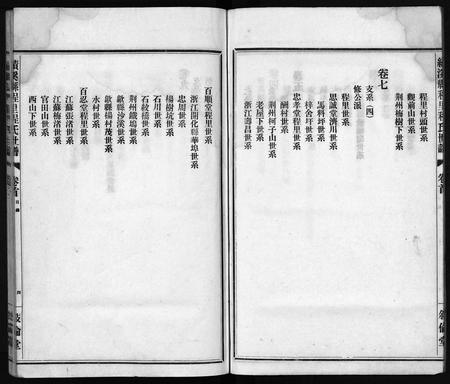 程里村頭世系
觀前山世系
荆州梅樹下世系
卷七
支系(四)
修公派
程里世系
思誠堂濟川世系
馮村坪世系
梓舍坪世系
忠孝堂程里世系
酬村世系
荆州柯子山世系
老屋下世系
浙江壽昌世系
敍倫堂
百順堂程里世系
浙江開化縣華埠世系
忠周世系
楊樹坑世系
石川世系
石紋橋世系
荆州鐵塢世系
歙縣沙溪世系
歙縣楊村茂世系
水村世系
百忍堂程里世系
江蘇張渚世系
江蘇梅渚世系
官田山世系
西山下世系
卷首
目錄
四
敍倫堂